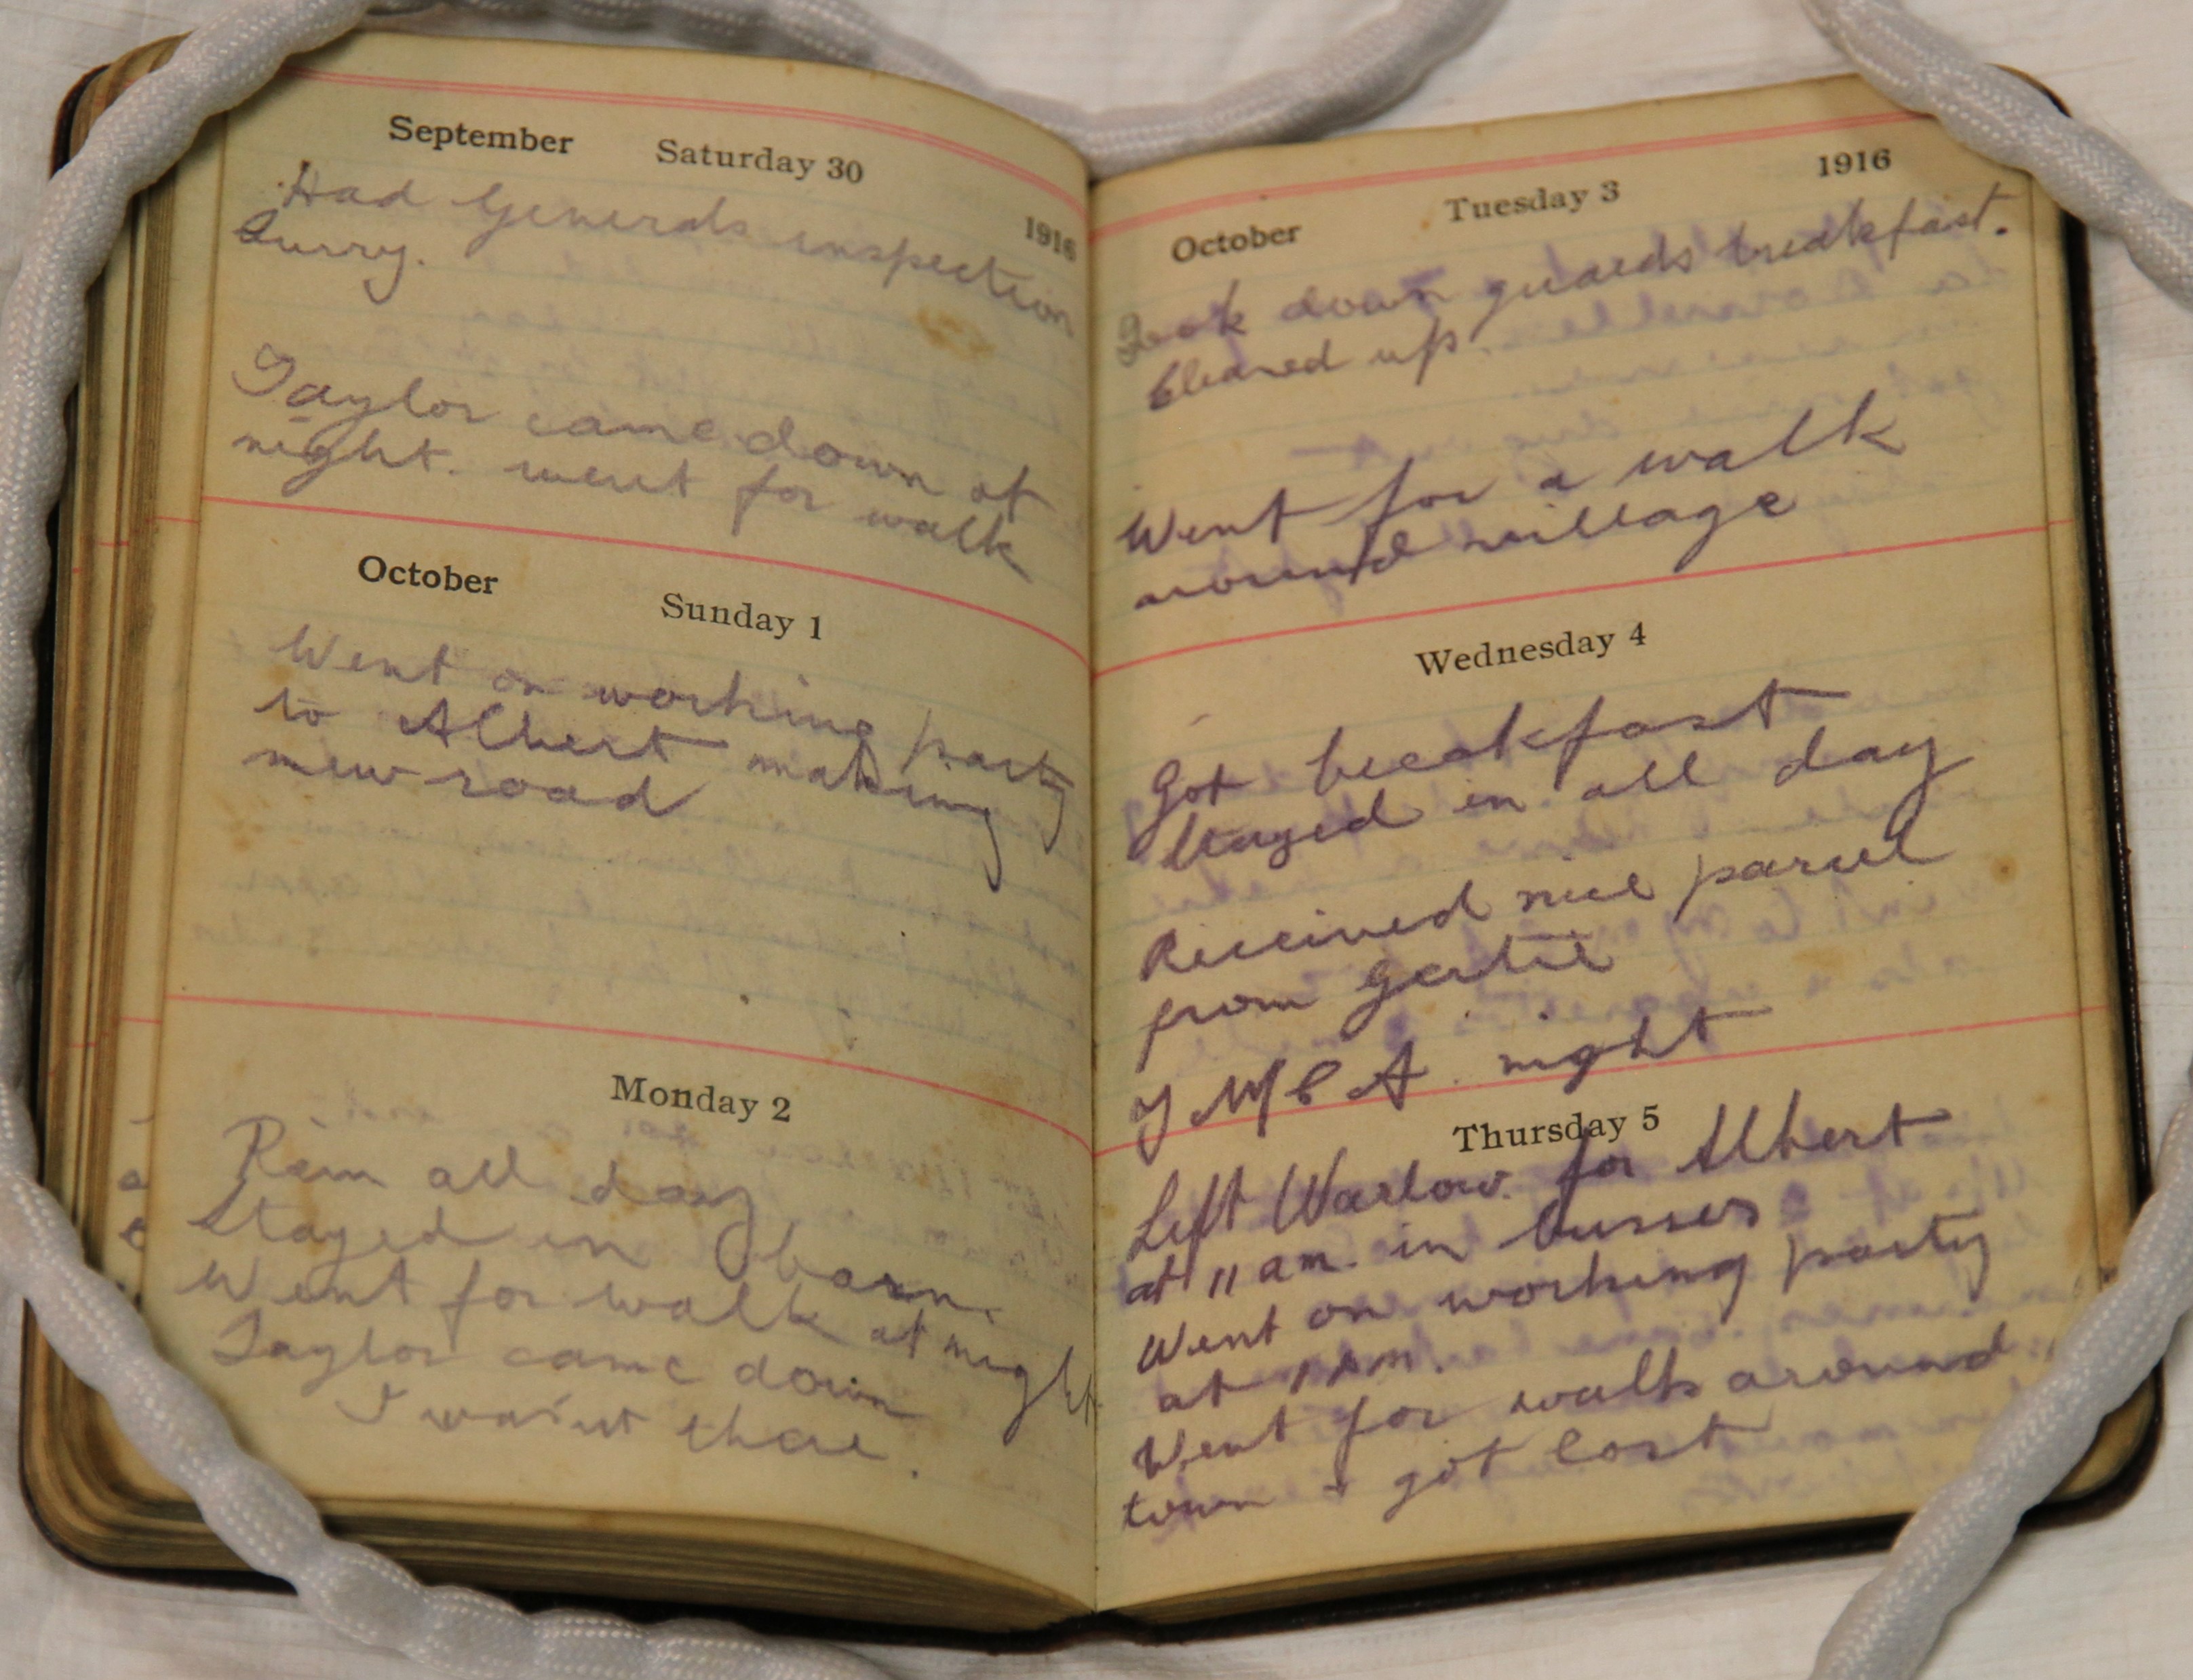 September Saturday 30 1916
Had Generals inspection
Taylor came down at
night. went for walk
October Sunday 1
Went on working party
to Albert making
new road
Monday 2
Rain all day
Stayed in barn.
Went for walk at night
Taylor came down
I was'nt there.
October Tuesday 3 1916
Took down guards breakfast.
Cleaned up
Went for a walk
around village
Wednesday 4
Got breakfast
Stayed in all day
Received nice parcel
from Gertie
Y M C A. night
Thursday 5
Left Warlow. for Albert
at 11 am. in busses
Went on working party
at 1 pm.
Went for walk around
town + got lost